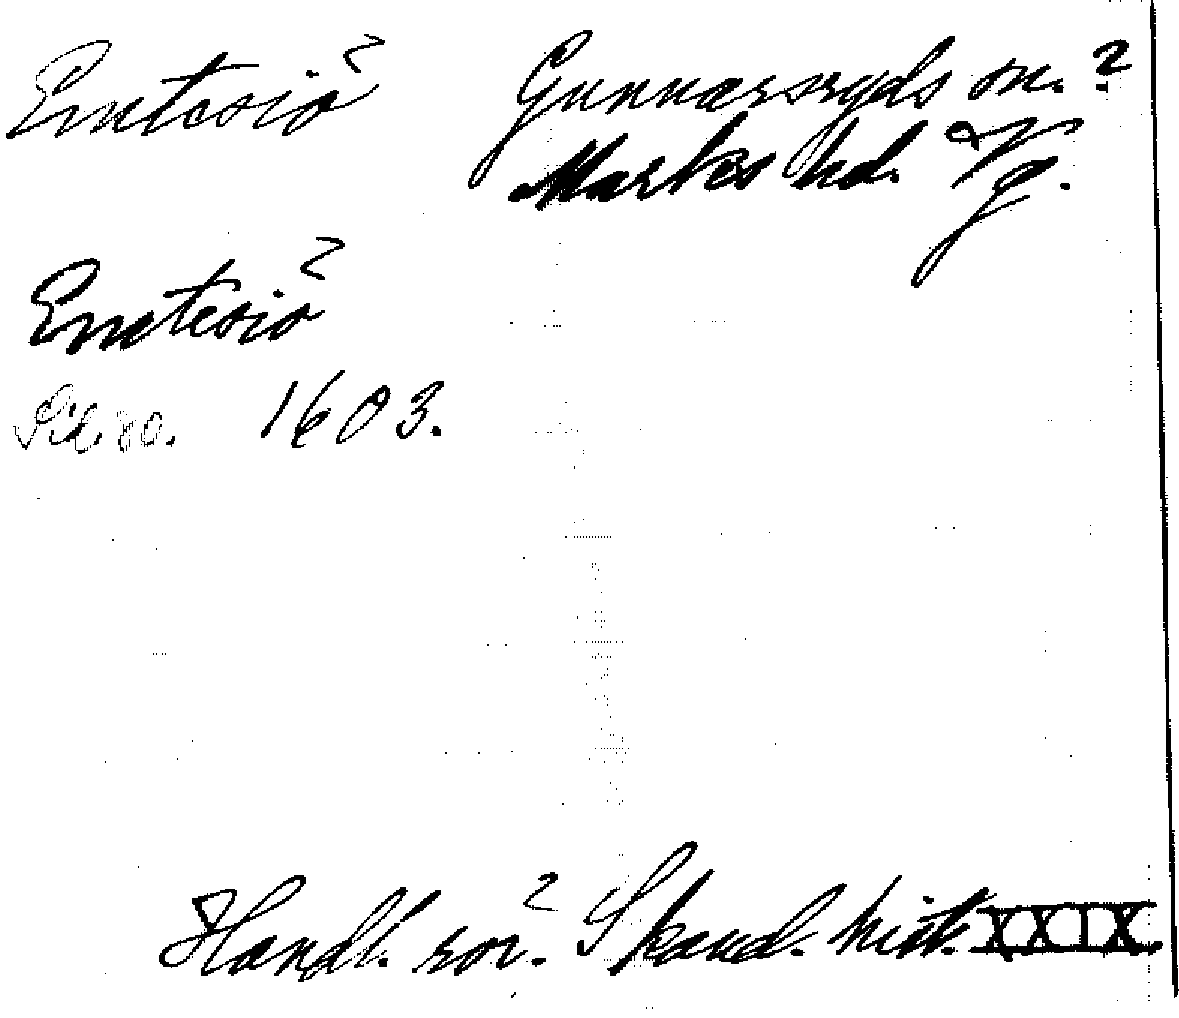 Emtesiö Gunnarsryds sn.?
Marks hd. Vg.
Emtesiö
Sid. 80. 1603.
Handl. rör. Skand. hist. XXIX.